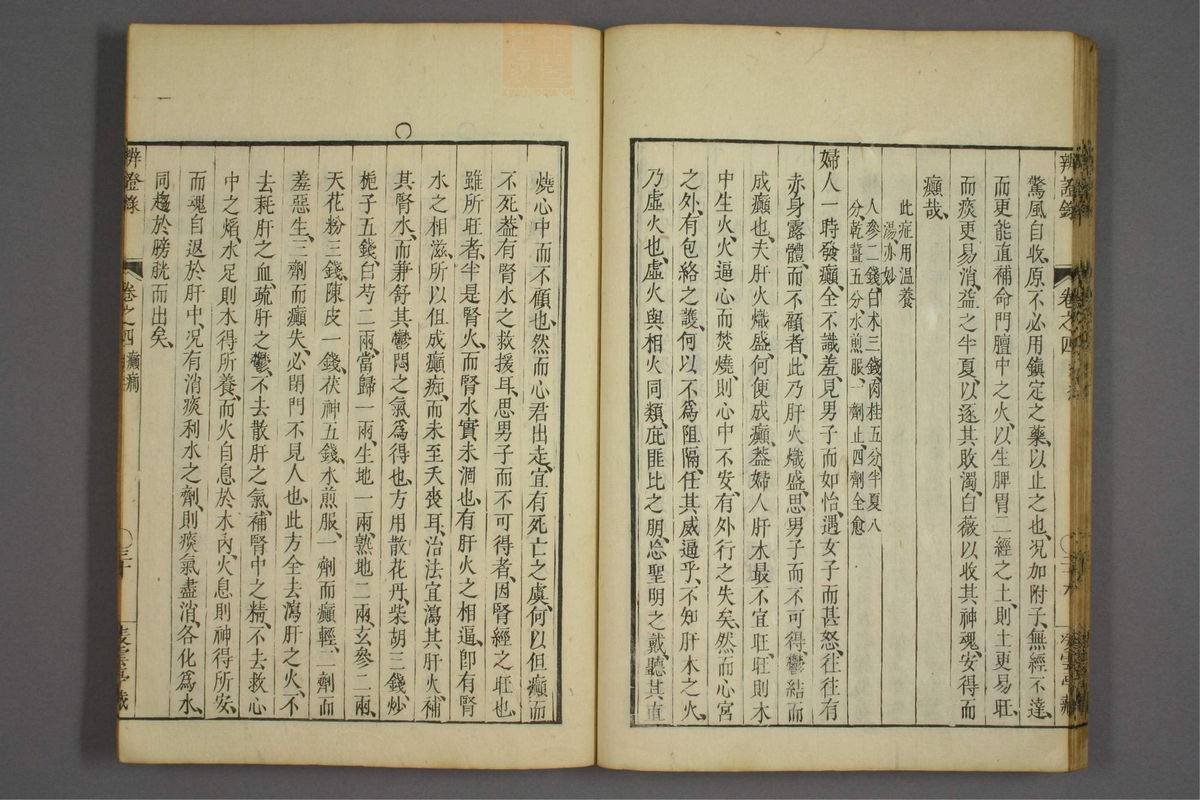 驚風自收原不必用鎭定之藥以止之也況加附子無經不達
而更能直補命門膻中之火以生脾胃二經之土則土更易旺
而痰更易消益之半夏以逐其敗濁白薇以收其神魂安得而
癲哉
此症用溫養
湯亦妙
人參二錢白朮三錢肉桂五分半夏八
分乾薑五分水煎服一劑止四劑全愈
婦人一時發癲全不識羞見男子而如怡遇女子而甚怒往往有
赤身露體而不顧者此乃肝火熾盛思男子而不可得鬱結而
成癲也夫肝火熾盛何便成癲葢婦人肝木最不宜旺旺則木
中生火火逼心而焚燒則心中不安有外行之失矣然而心宮
之外有包絡之護何以不爲阻隔任其威逼乎不知肝木之火
乃虛火也虛火與相火同類庇匪比之朋忘聖明之戴聽其直
辨證錄
卷之四
燒心中而不顧也然而心君出走宜有死亡之虞何以但癲而
不死葢有腎水之救援耳思男子而不可得者因腎經之旺也
雖所旺者半是腎火而腎水實未涸也有肝火之相逼卽有腎
水之相滋所以但成癲痴而未至夭喪耳治法宜瀉其肝火補
其腎水而兼舒其鬱悶之氣爲得也方用散花丹柴胡三錢炒
梔子五錢白芍二兩當歸一兩生地一兩熟地二兩玄參二兩
天花粉三錢陳皮一錢茯神五錢水煎服一劑而癲輕二劑而
羞惡生三劑而癲失必閉門不見人也此方全去瀉肝之火不
去耗肝之血疏肝之鬱不去散肝之氣補腎中之精不去救心
中之焰水足則木得所養而火自息於木內火息則神得所安
而魂自返於肝中況有消痰利水之劑則痰氣盡消各化爲水
同趨於膀胱而出矣
辨證錄
卷之四
癲癇
三十